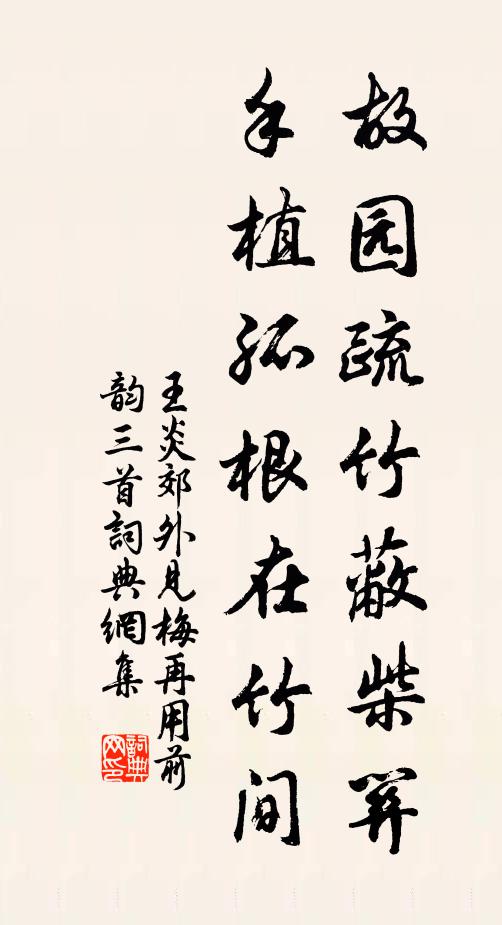 故园疏竹蔽柴关
手植孤根在竹间
王炎郊外见梅再用前
韵三首詞典網集
詞典网印